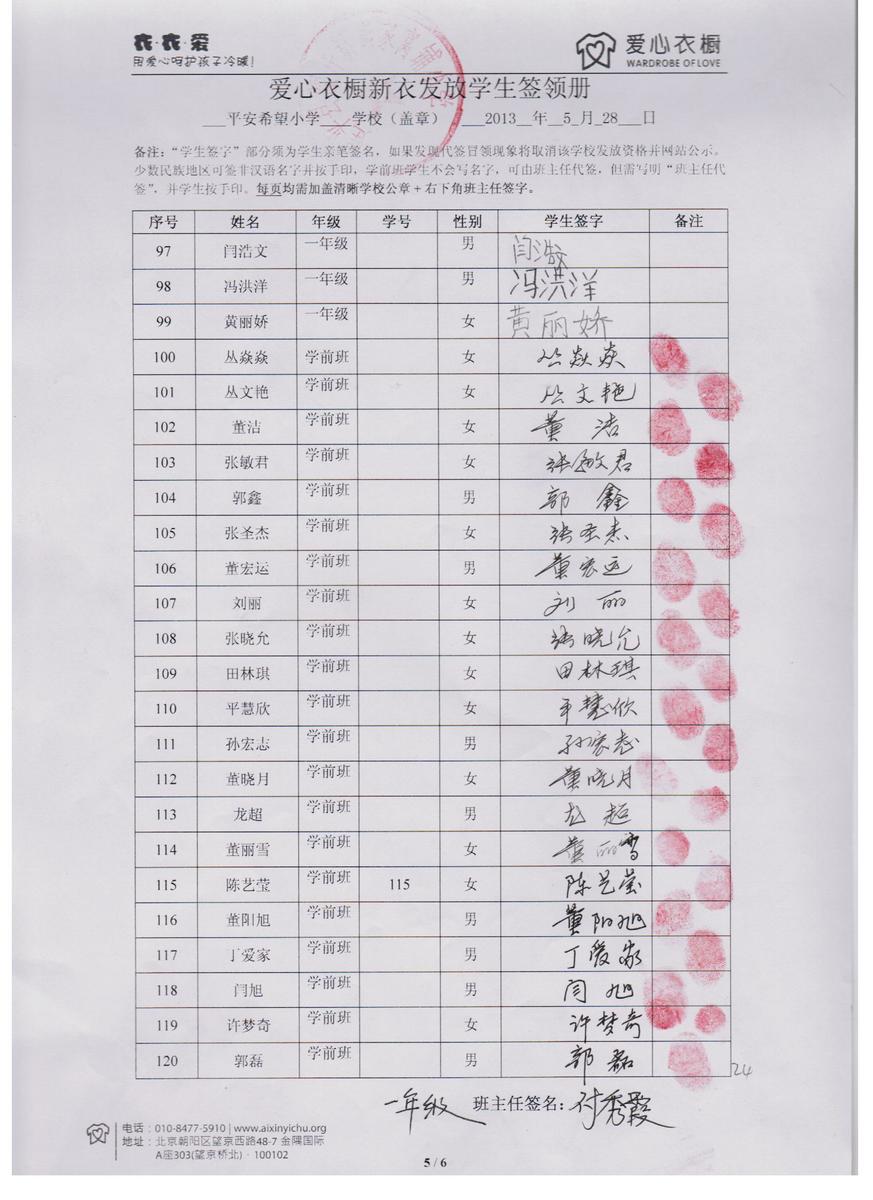 衣·衣·爱
用爱心呵护孩子冷暖!
爱心衣橱
WARDROBE OF LOVE
爱心衣橱新衣发放学生签领册
___平安希望小学____学校（盖章） ___2013__年__5_月_28___日
备注：“学生签字”部分须为学生亲笔签名，如果发现代签冒领现象将取消该学校发放资格并网站公示。
少数民族地区可签非汉语名字并按手印，学前班学生不会写名字，可由班主任代签，但需写明“班主任代
签”，并学生按手印。每页均需加盖清晰学校公章+右下角班主任签字。
序号 姓名 年级 学号 性别 学生签字 备注
97 闫浩文 一年级 男 闫浩文
98 冯洪洋 一年级 男 冯洪洋
99 黄丽娇 一年级 女 黄丽娇
100 丛焱焱 学前班 女 丛焱焱
101 丛文艳 学前班 女 丛文艳
102 董洁 学前班 女 董洁
103 张敏君 学前班 女 张敏君
104 郭鑫 学前班 男 郭鑫
105 张圣杰 学前班 女 张圣杰
106 董宏运 学前班 男 董宏运
107 刘丽 学前班 女 刘丽
108 张晓允 学前班 女 张晓允
109 田林琪 学前班 女 田林琪
110 平慧欣 学前班 女 平慧欣
111 孙宏志 学前班 男 孙宏志
112 董晓月 学前班 女 董晓月
113 龙超 学前班 男 龙超
114 董丽雪 学前班 女 董丽雪
115 陈艺莹 学前班 115 女 陈艺莹
116 董阳旭 学前班 男 董阳旭
117 丁爱家 学前班 男 丁爱家
118 闫旭 学前班 男 闫旭
119 许梦奇 学前班 女 许梦奇
120 郭磊 学前班 男 郭磊
24
一年级 班主任签名：付秀霞
电话：010-8477-5910 | www.aixinyichu.org
地址：北京朝阳区望京西路48-7 金隅国际
A座303(望京桥北)·100102
5 / 6